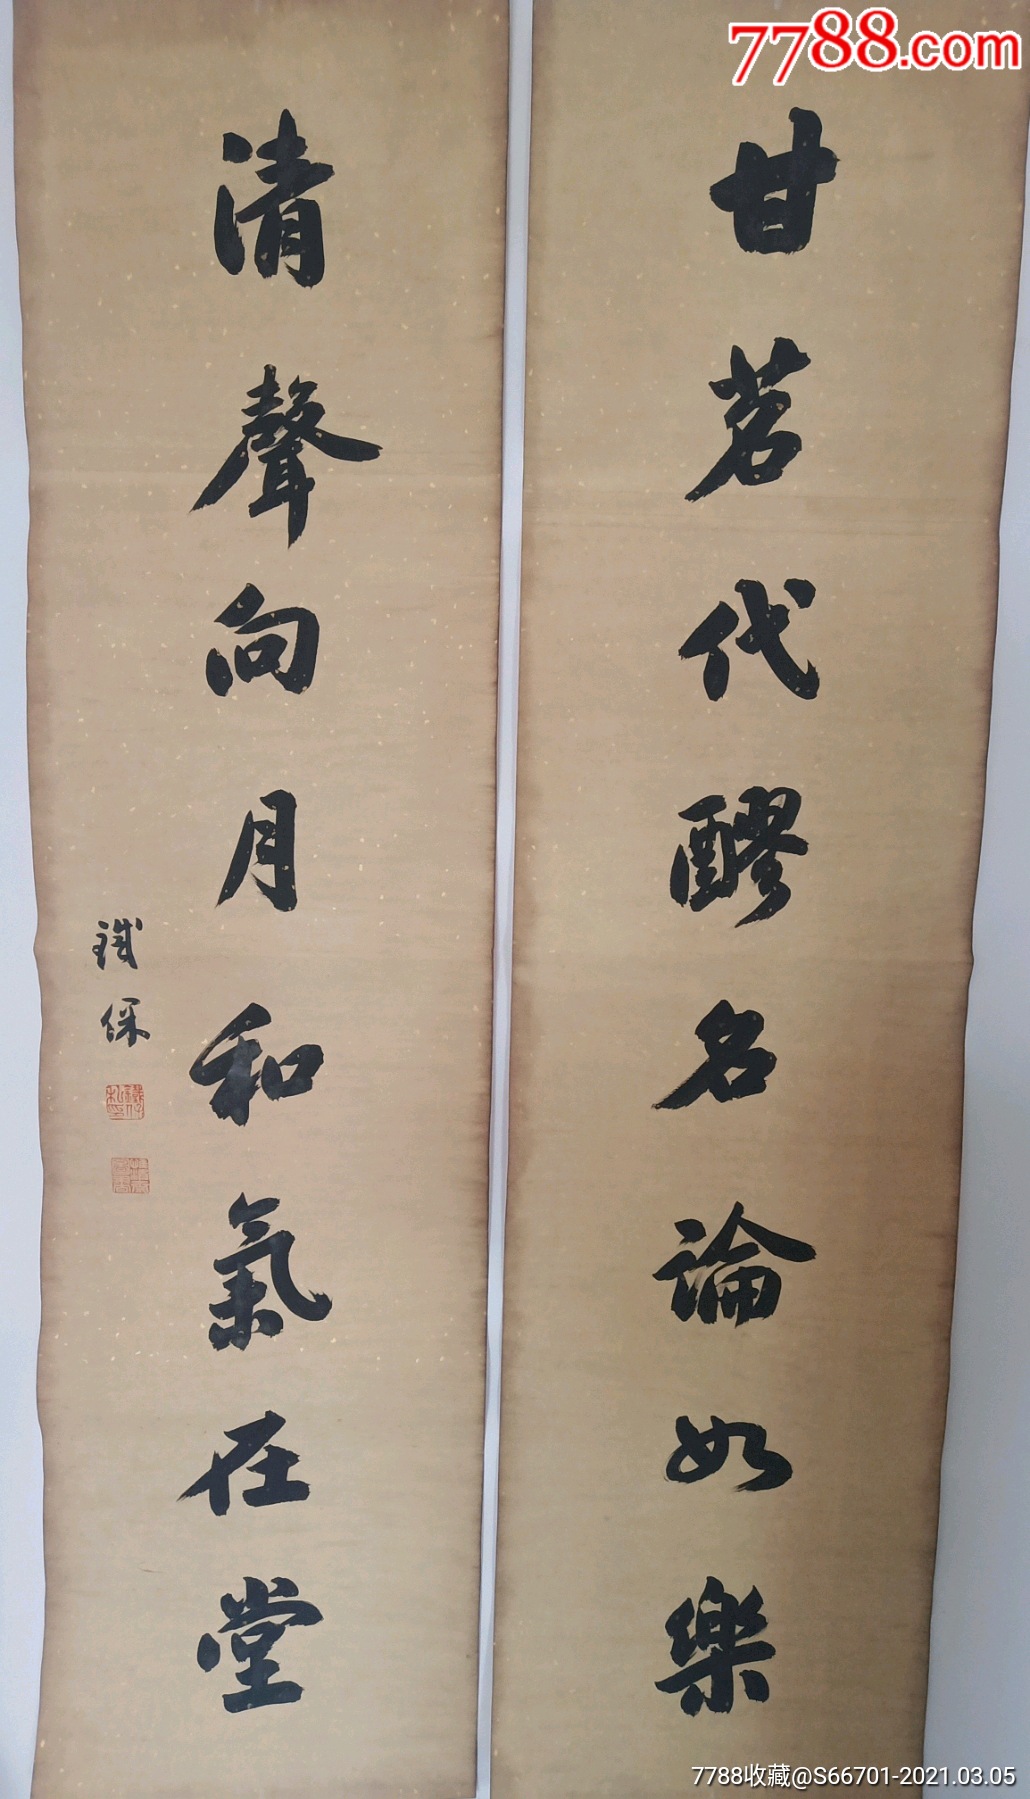 7788.com
甘茗代醪名論如樂
清聲向月和氣在堂
鐵保
7788收藏@S66701-2021.03.05